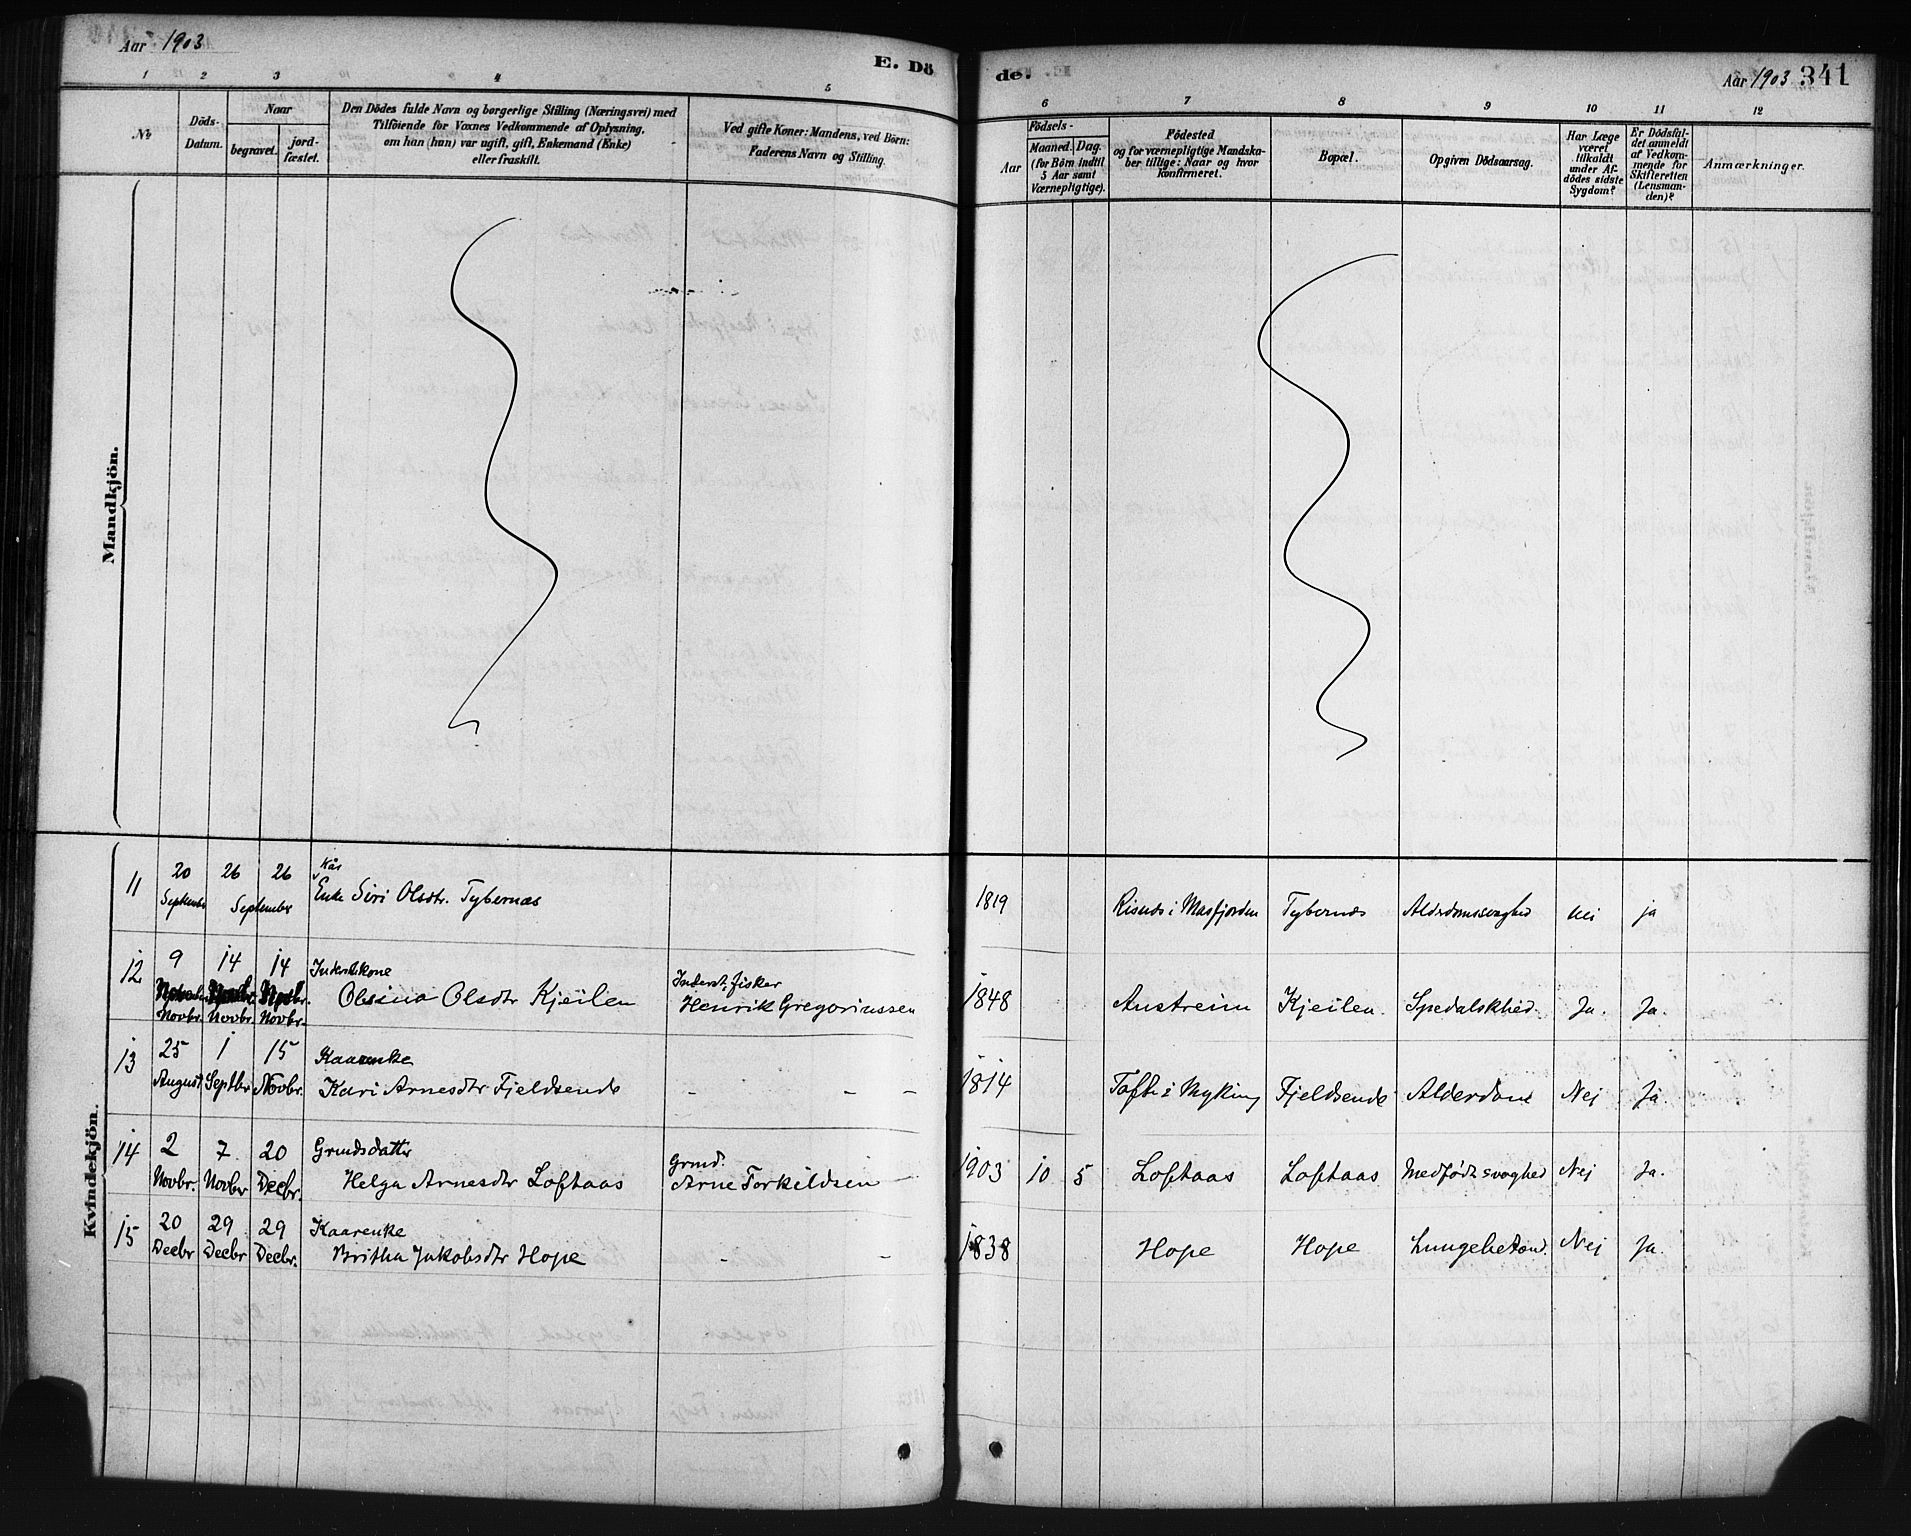 Aar 1903
E. Dö
de.
Aar 1903 341
1 2 3 4 5
6 7 8 9 10 11 12
No
Döds-
Datum.
Naar
begravet.
jord-
fæstet.
Den Dödes fulde Navn og borgerlige Stilling (Næringsvei) med
Tilföiende for Voxnes Vedkommende af Oplysning,
om han (hun) var ugift, gift, Enkemand (Enke)
eller fraskilt.
Ved gifte Koner: Mandens, ved Börn:
Faderens Navn og Stilling.
Födsels-
Aar
Maaned. Dag.
(for Börn indtil
5 Aar samt
Værnepligtige).
Födested
og for værnepligtige Mandska-
ber tillige: Naar og hvor
konfirmeret.
Bopæl.
Opgiven Dödsaarsag.
Har Læge
været
tilkaldt
under Af-
dödes sidste
Sygdom?
Er Dödsfal-
det anmeldt
af Vedkom-
mende for
Skifteretten
(Lensman-
den)?
Anmærkninger.
Mandkjön.
Kvindekjön.
11 20 26 26 Kår
September September Enke Siri Olsdtr. Tybernæs 1819 Risnes i Masfjorden Tybernæs Alderdomssvaghed nei ja
12 9 14 14 Inderstkone Inderst, fisker
Novbr. Novbr. Novbr. Olsina Olsdtr Kjeilen Henrik Gregoriussen 1848 Austreim Kjeilen. Spedalskhed. Ja. Ja.
13 25 1 15 Kaarenke
August Septbr Novbr. Kari Arnesdtr Fjeldsende - - - 1814 Tofte i Myking Fjeldsende Alderdom Nej Ja.
14 2 7 20 Grudsdatter Grud.
Novbr. Novbr Decbr. Helga Arnesdtr Loftaas Arne Torkildsen 1903 10 5 Loftaas Loftaas Medfødt svaghed Nej Ja.
15 20 29 29 Kaarenke
Decbr Decbr Decbr. Britha Jakobsdtr Hope - - 1838 Hope Hope Lungebetænd. Nej Ja.